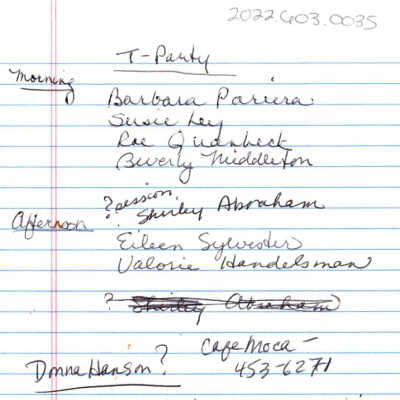 2022.603.0035
T-Party
Morning
Barbara Pariera
Susie Ley
Rae Quanbeck
Beverly Middleton
? session
? Shirley Abraham
Afternoon
Eileen Sylvester
Valorie Handelsman
? Shirley Abraham
Cafe Moca -
Donna Hanson? 453-6271